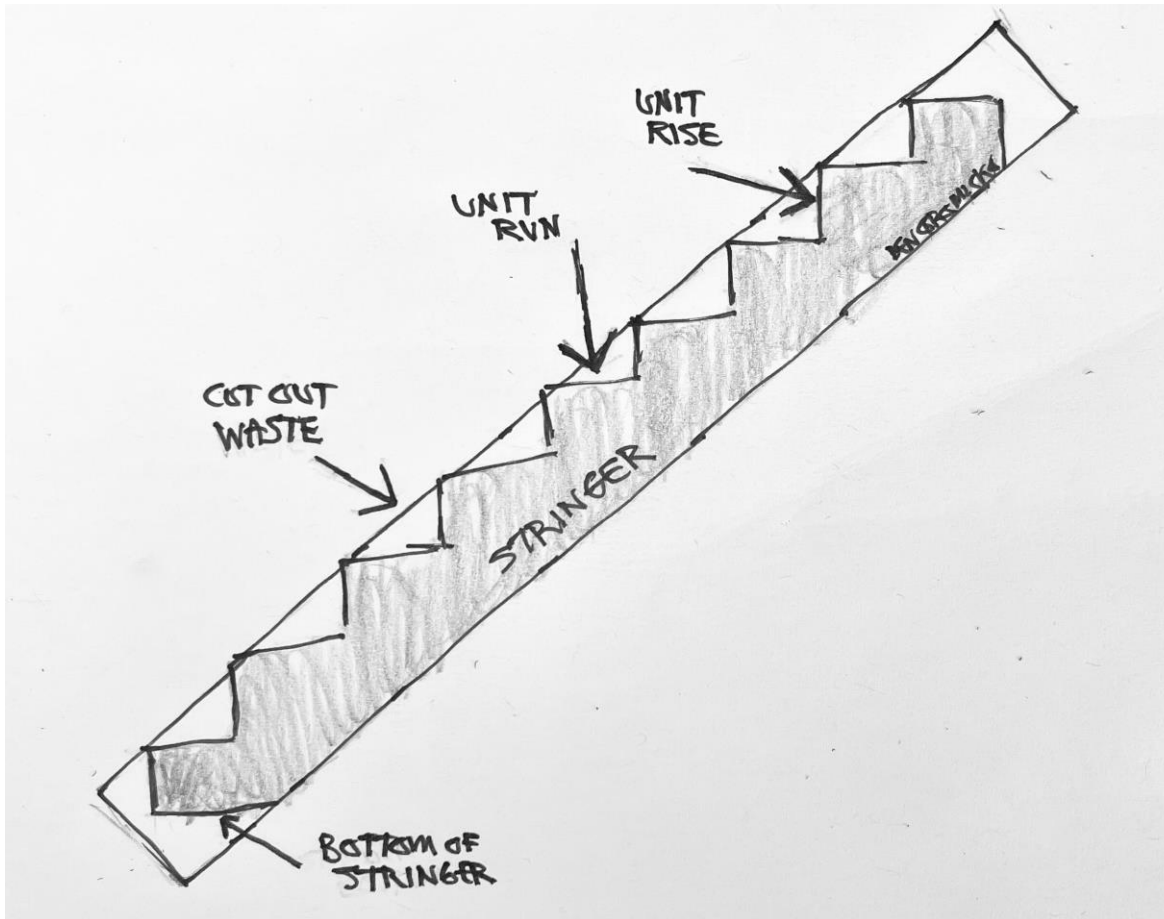 UNIT
RISE
UNIT
RUN
CUT OUT
WASTE
STRINGER
BOTTOM OF
STRINGER